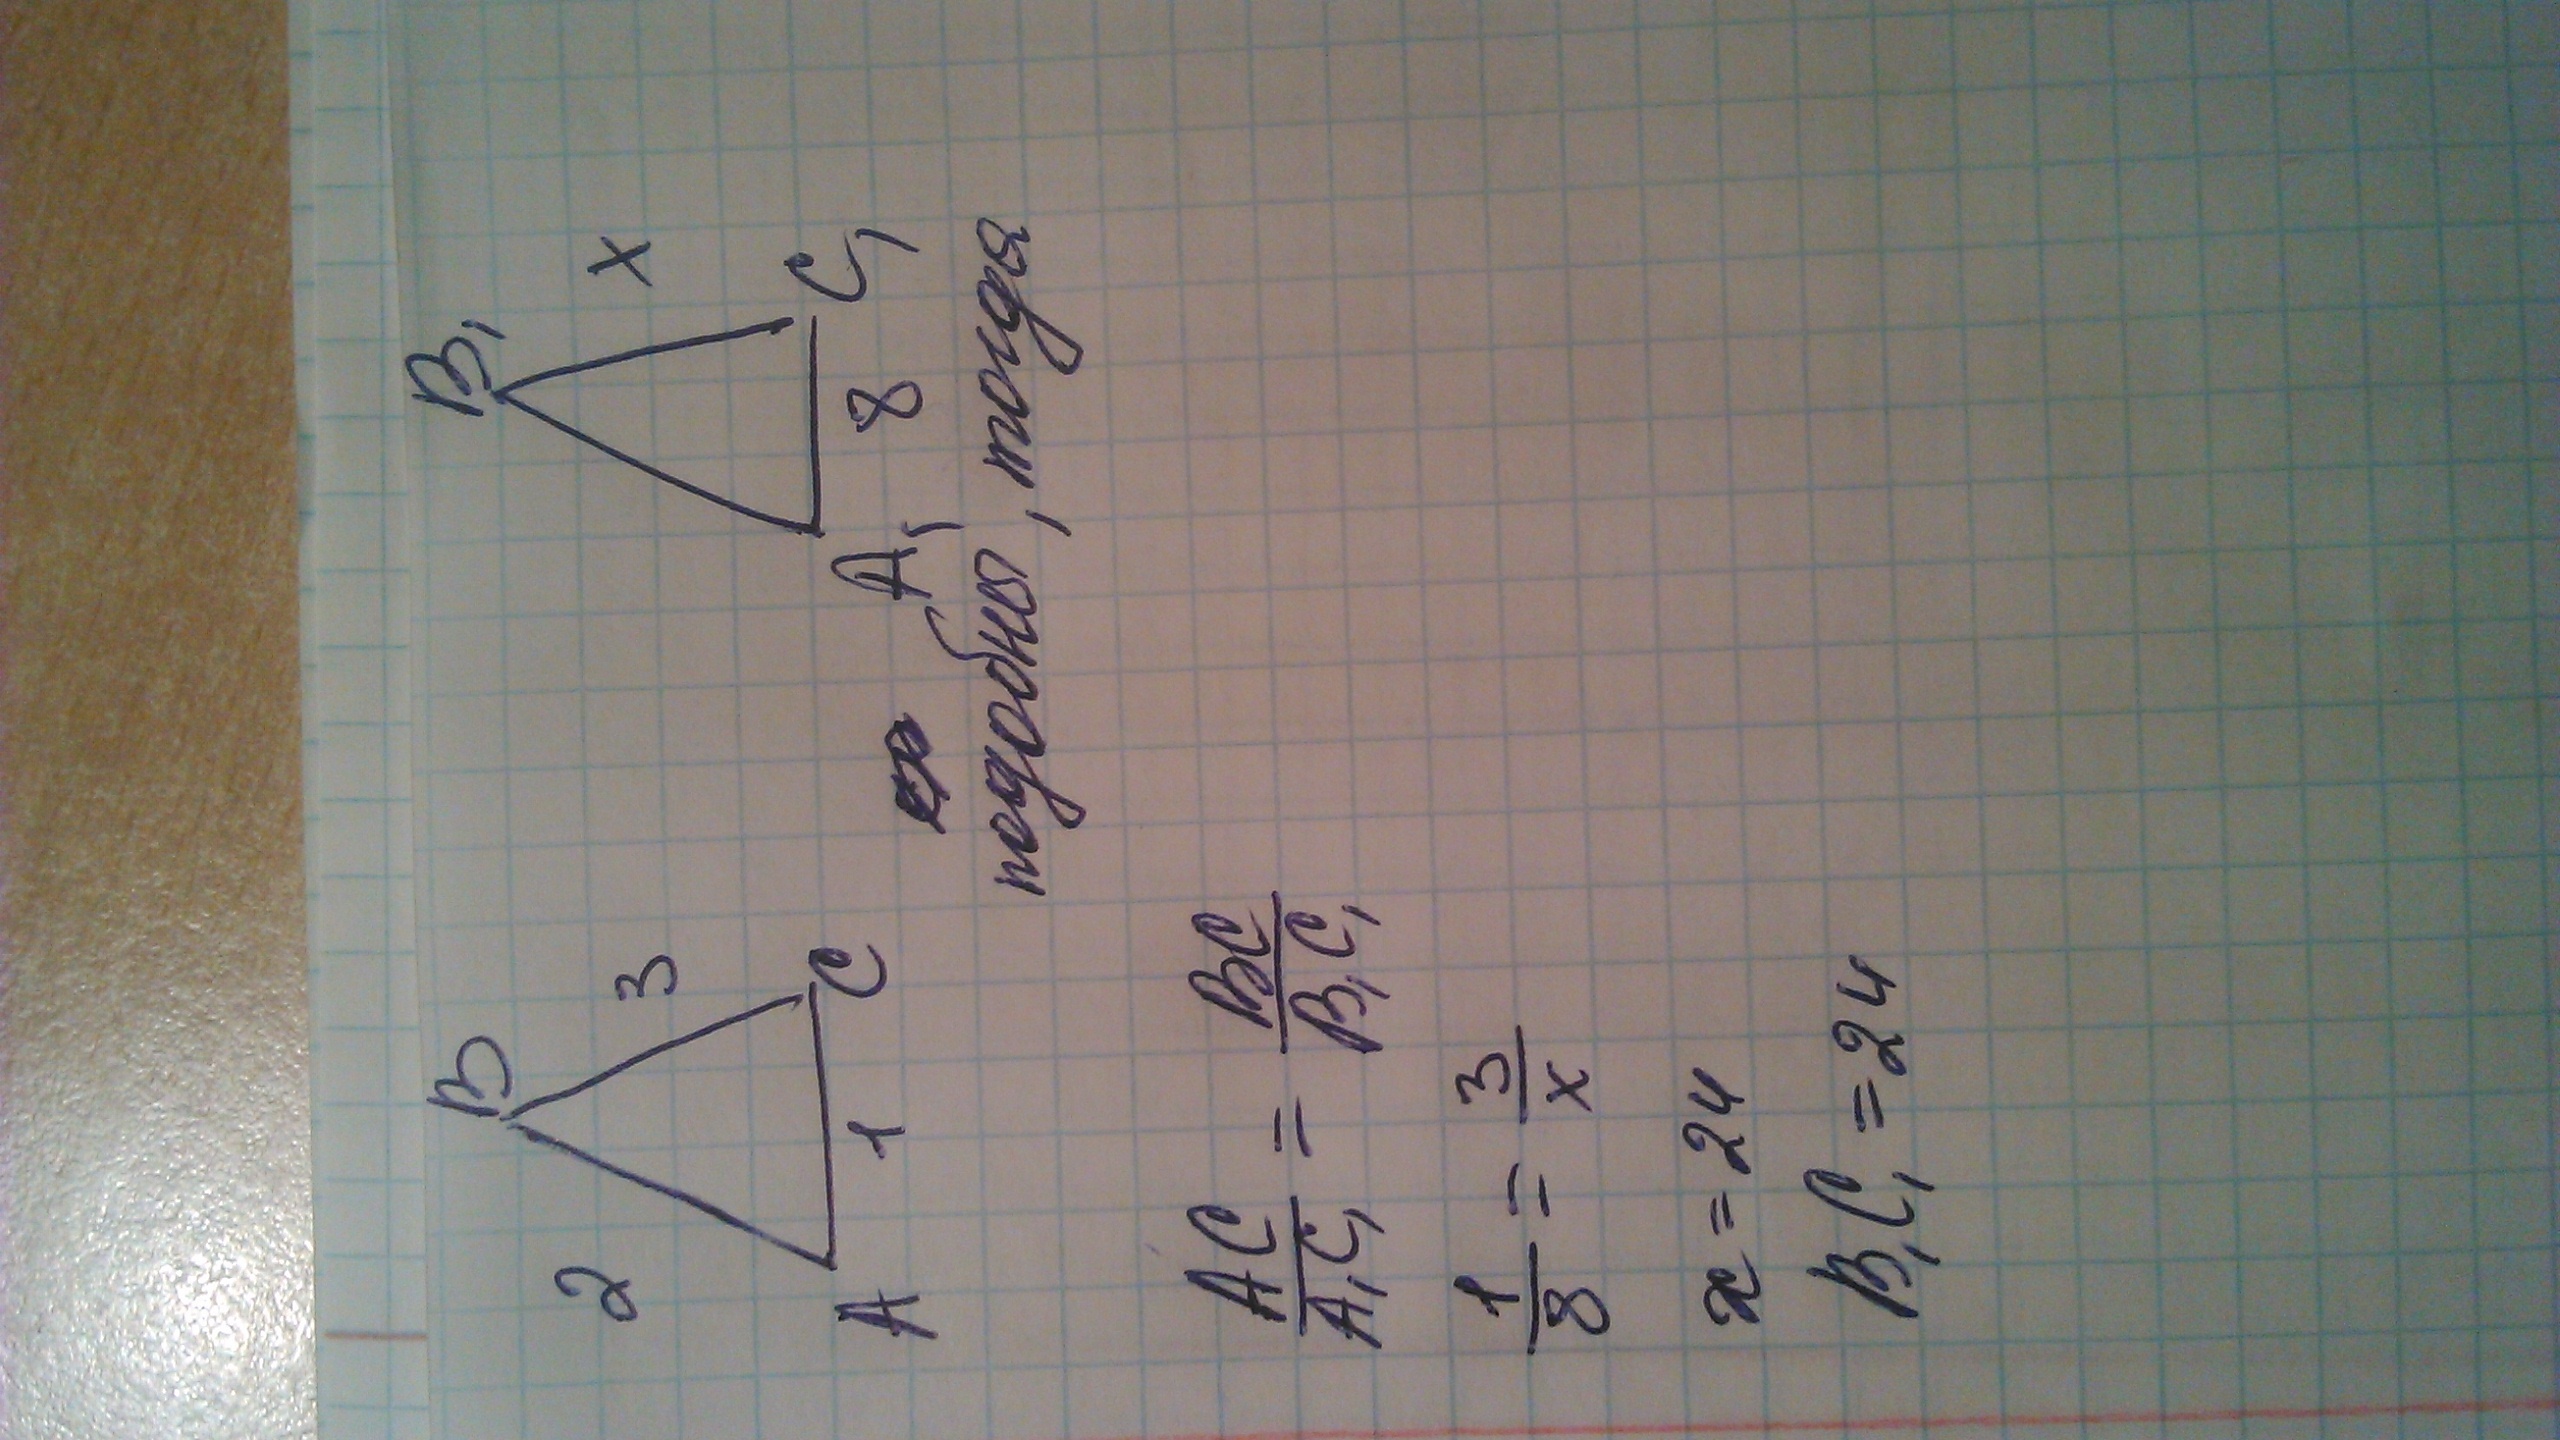 B B₁
2 3 x
A 1 C A₁ 8 C₁
подобны, тогда
AC/A₁C₁ = BC/B₁C₁
1/8 = 3/x
x = 24
B₁C₁ = 24